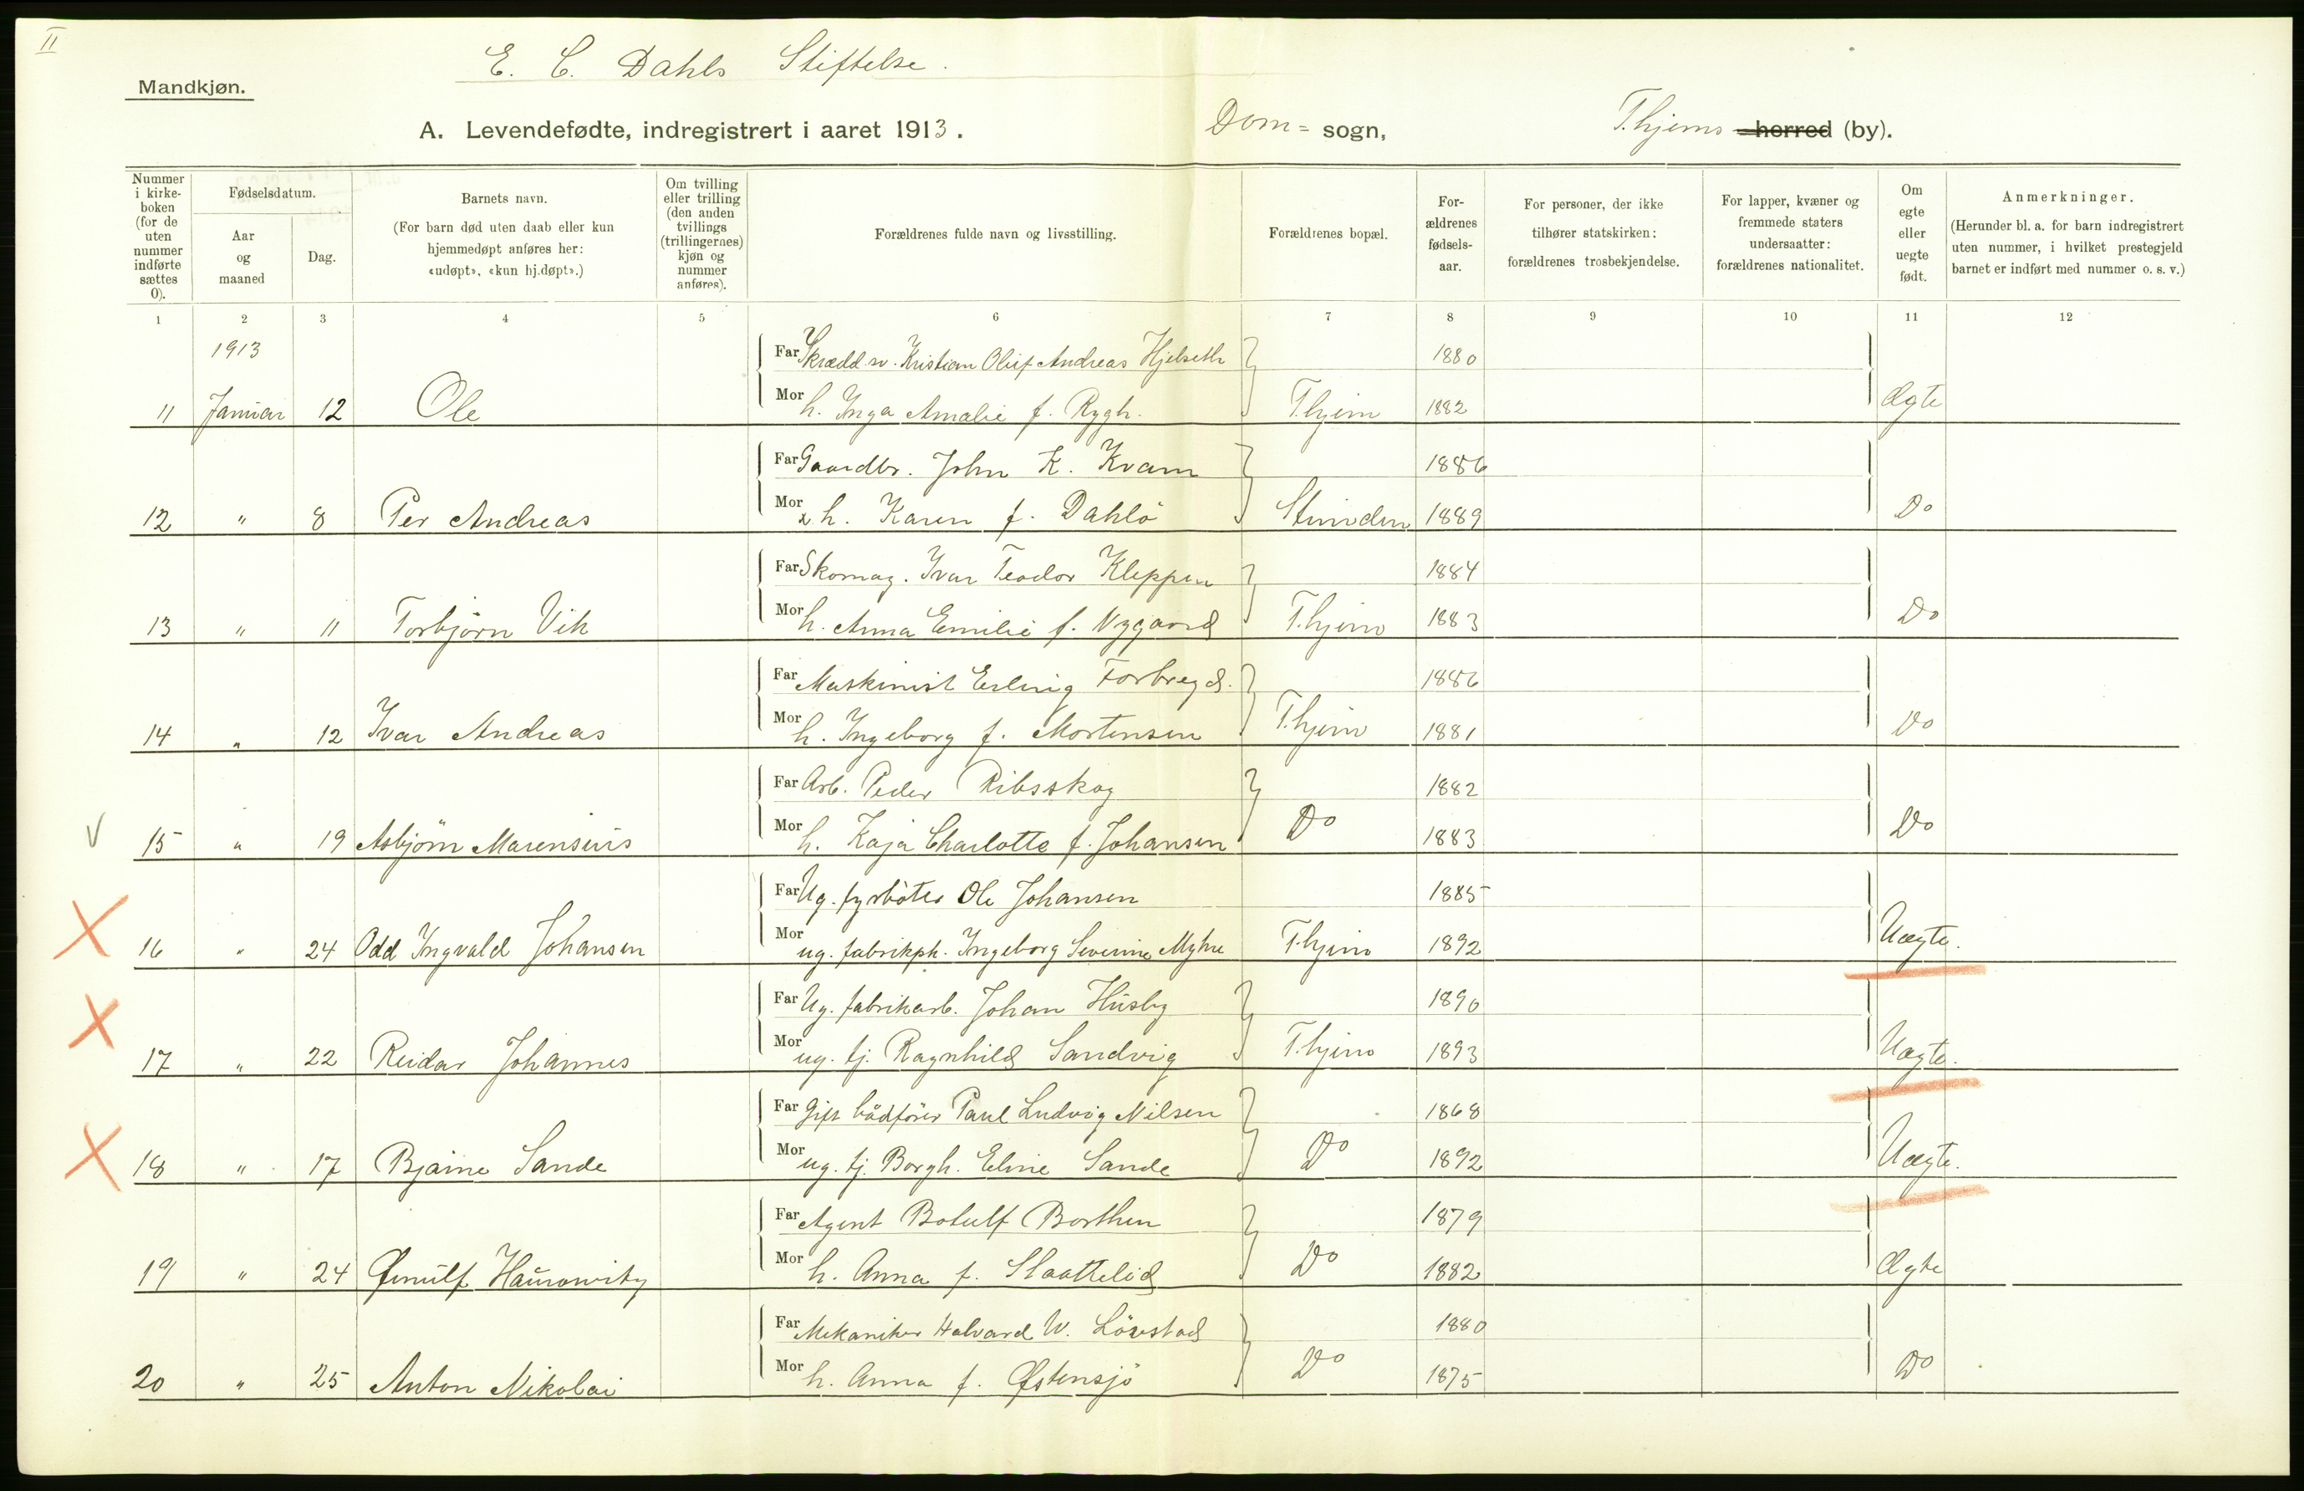 II
E. C. Dahls Stiftelse.
Mandkjøn.
A. Levendefødte, indregistrert i aaret 1913.
Dom= sogn,
T.hjems herred (by).
Nummer i kirke-boken (for de uten nummer indførte sættes 0).
Fødselsdatum.
Aar og maaned
Dag.
Barnets navn.
(For barn død uten daab eller kun hjemmedøpt anføres her: «udøpt», «kun hj.døpt».)
Om tvilling eller trilling (den anden tvillings (trillingernes) kjøn og nummer anføres).
Forældrenes fulde navn og livsstilling.
Forældrenes bopæl.
For-ældrenes fødsels-aar.
For personer, der ikke tilhører statskirken: forældrenes trosbekjendelse.
For lapper, kvæner og fremmede staters undersaatter: forældrenes nationalitet.
Om egte eller uegte født.
Anmerkninger.
(Herunder bl. a. for barn indregistrert uten nummer, i hvilket prestegjeld barnet er indført med nummer o. s. v.)
1 2 3 4 5 6 7 8 9 10 11 12
1913
Far Skrædd.sv. Kristian Oluf Andreas Hjelseth 1880
11 Januar 12 Ole Mor h. Inga Amalie f. Rygh. T.hjem 1882 Ægte
Far Gaardbr. John K. Kvam 1886
12 " 8 Per Andreas Mor h. Karen f. Dahlö Strinden 1889 Do
Far Skomag. Ivar Teodor Kleppen 1884
13 " 11 Torbjörn Vik Mor h. Anna Emilie f. Nygaard T.hjem 1883 Do
Far Maskinist Erling Forbregd. 1886
14 " 12 Ivar Andreas Mor h. Ingeborg f. Mortensen T.hjem 1881 Do
Far Arb. Peder Ribsskog 1882
V 15 " 19 Asbjörn Marensius Mor h. Kaja Charlotte f. Johansen Do 1883 Do
Far Ug. fyrböter Ole Johansen 1885
16 " 24 Odd Ingvald Johansen Mor ug. fabrikph. Ingeborg Severine Myhre T.hjem 1892 Uægte.
Far Ug. fabrikarb. Johan Husby 1890
17 " 22 Reidar Johannes Mor ug. tj. Ragnhild Sandvig T.hjem 1893 Uægte.
Far Gift bådförer Paul Ludvig Nilsen 1868
18 " 17 Bjarne Sande Mor ug. tj. Borgh. Eline Sande Do 1892 Uægte.
Far Agent Botulf Borthen 1879
19 " 24 Mor h. Anna f. Slaattelid Do 1882 Ægte
Far Mekaniker Halvard W. Lövestad 1880
20 " 25 Anton Nikolai Mor h. Anna f. Østensjö Do 1875 Do